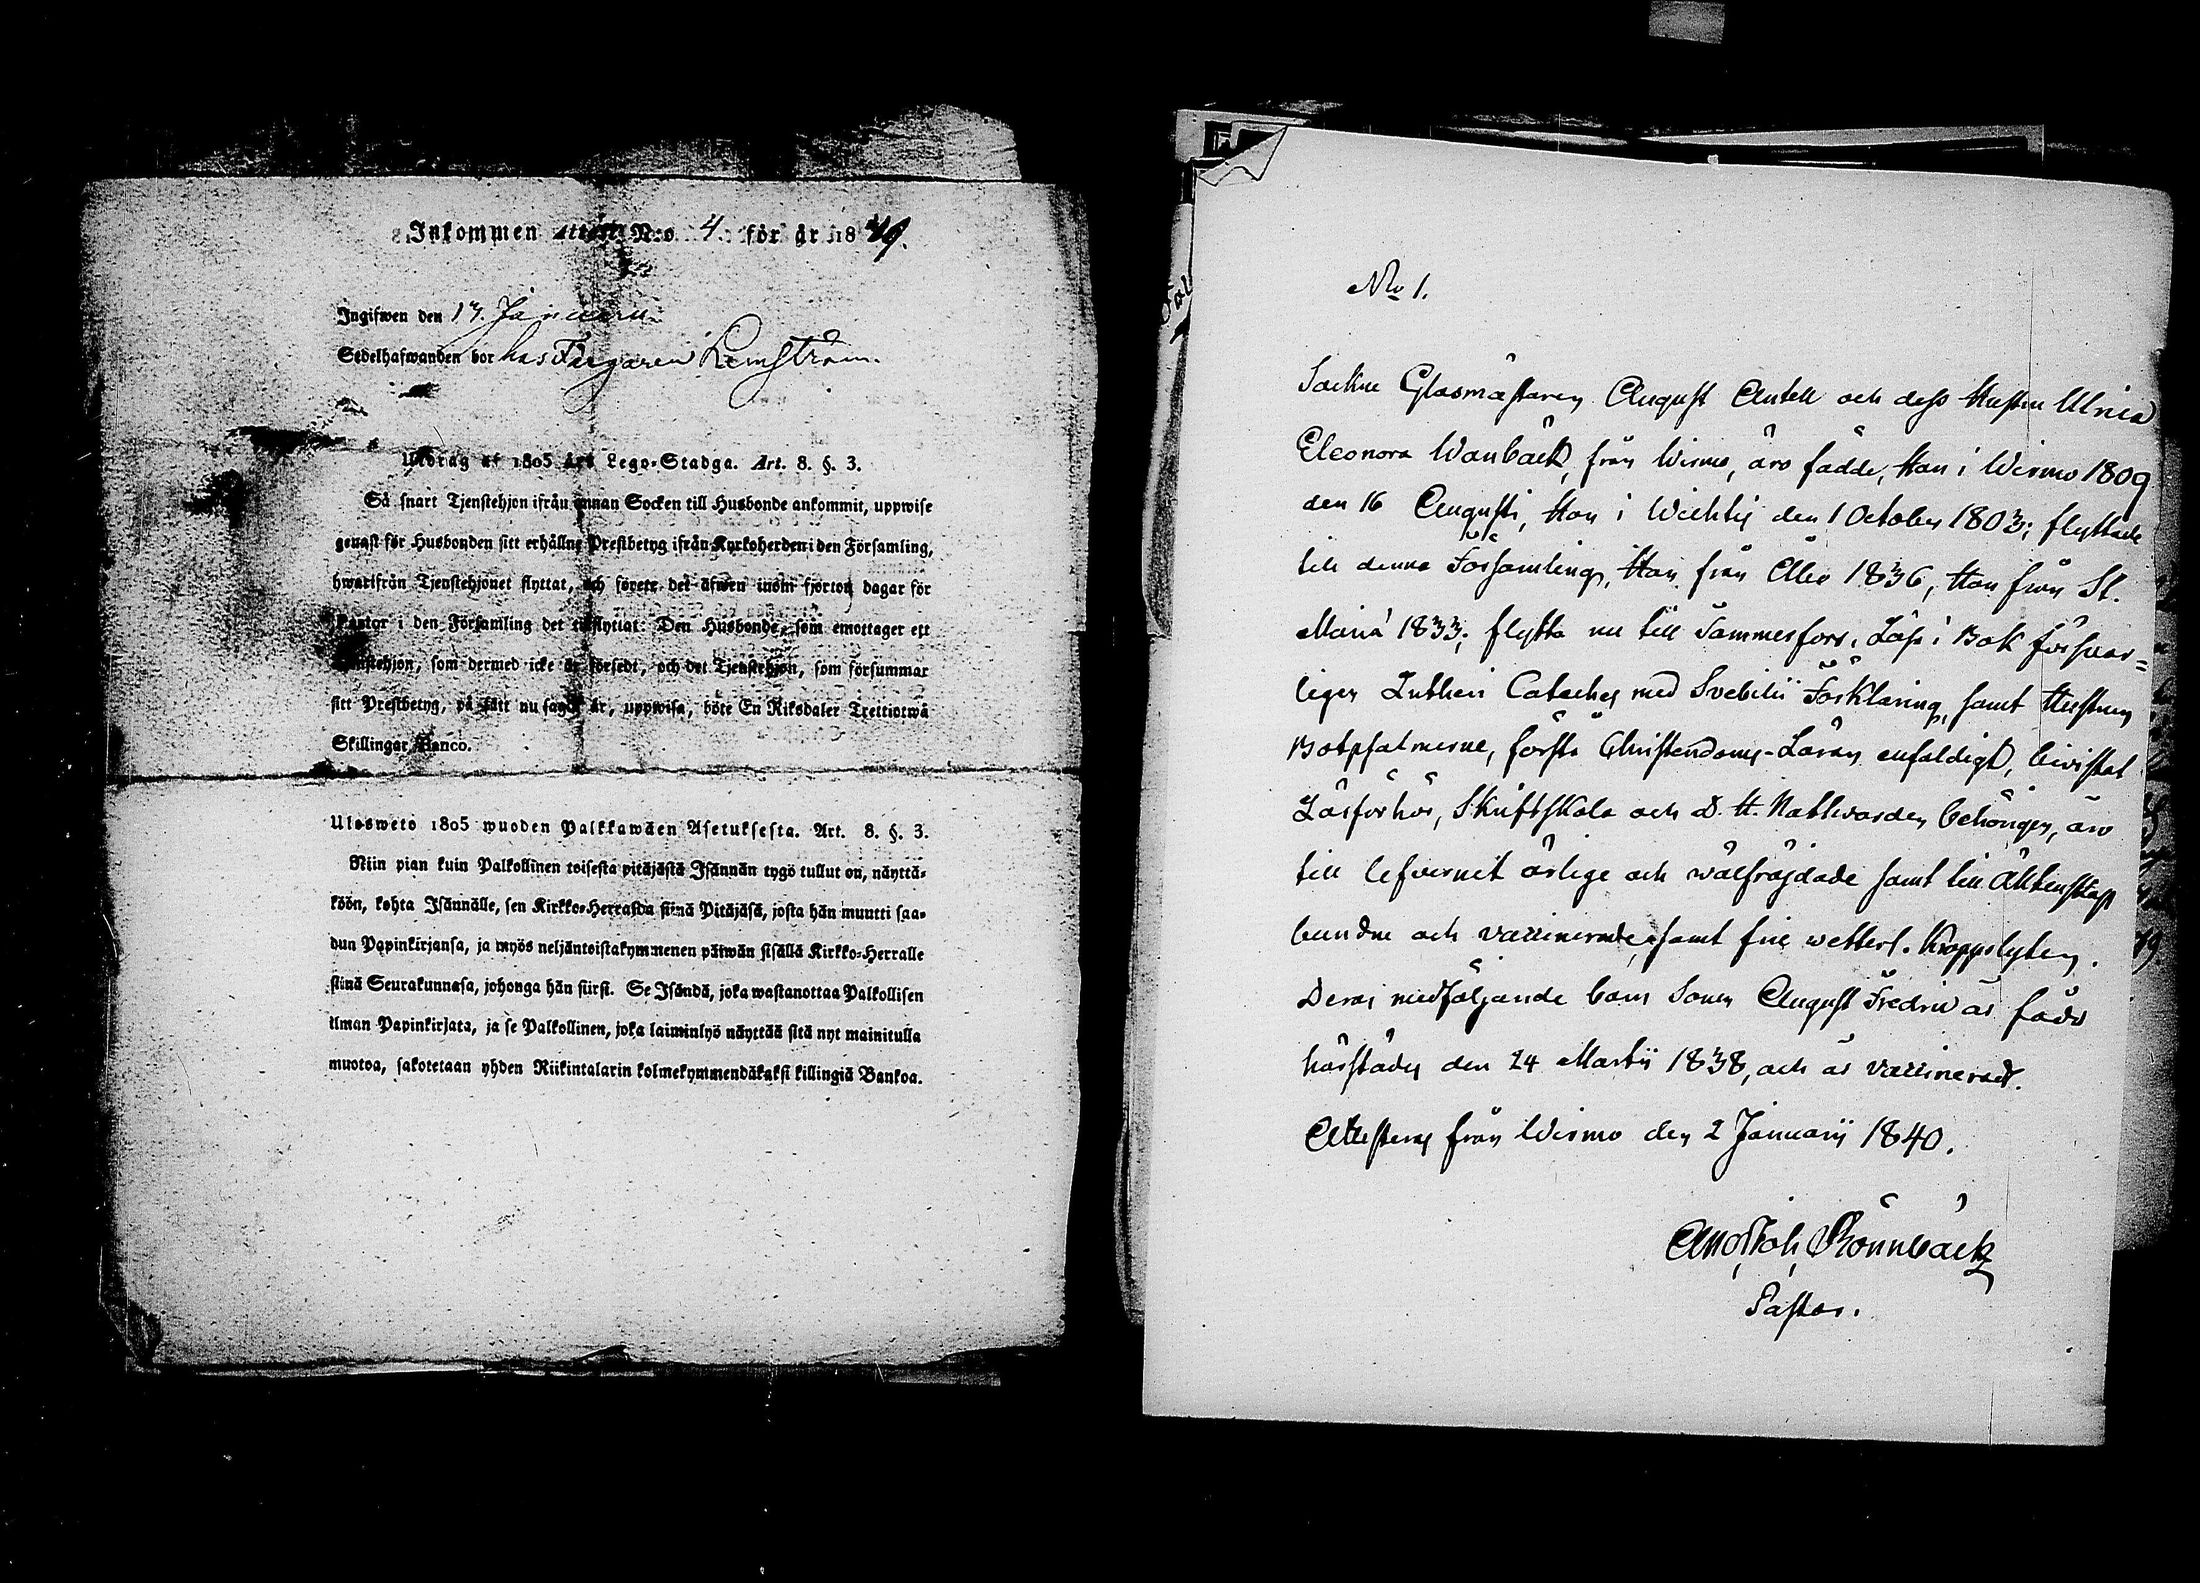 Inkommen attest N:o 4. för år 1849.
Ingifwen den 17. Januarii
Sedelhafwanden bor hos Färgaren Remström.
Utdrag af 1805 års Lego-Stadga. Art. 8. §. 3.
Så snart Tjenstehjon ifrån annan Socken till Husbonde ankommit, uppwise
genast för Husbonden sitt erhållne Prestbetyg ifrån Kyrkoherden i den Församling,
hwarifrån Tjenstehjonet flyttat, och förete det äfwen inom fjorton dagar för
Pastor i den Församling det tillflyttat. Den Husbonde, som emottager ett
Tjenstehjon, som dermed icke är försedt, och det Tjenstehjon, som försummar
sitt Prestbetyg, på sätt nu sagdt är, uppwisa, böte En Riksdaler Trettiotwå
Skillingar Banco.
Ulosweto 1805 wuoden Palkkawäen Asetuksesta. Art. 8. §. 3.
Niin pian kuin Palkollinen toisesta pitäjästä Isännän tygö tullut on, näyttä-
köön, kohta Isännälle, sen Kirkko-Herralda siinä Pitäjäsä, josta hän muutti saa-
dun Papinkirjansa, ja myös neljäntoistakymmenen päiwän sisällä Kirkko-Herralle
siinä Seurakunnasa, johonga hän siirsi. Se Isändä, joka wastanottaa Palkollisen
ilman Papinkirjata, ja se Palkollinen, joka laiminlyö näyttää sitä nyt mainitulla
muotoa, sakotetaan yhden Riikintalarin kolmekymmendäkaksi killingiä Bankoa.
No 1.
Sockne Glasmästaren August Antell och dess Hustru Ulrica
Eleonora Wanbäck, från Wirmo, äro födde, Han i Wirmo 1809
den 16 Augusti, Hon i Wichtis den 1 October 1803; flyttade
till denna Församling, Han från Åbo 1836, Hon från St.
Mariæ 1833; flytta nu till Tammerfors. Läsa i Bok försvar-
ligen Lutheri Cateches med Svebilii Förklaring, samt Hustrun
Botpsalmerne, förstå Christendoms-Läran enfaldigt, bevistat
Läsförhör, Skriftskola och D. H. Nattvarden behörigen, äro
till lefvernet ärlige och wälfräjdade samt till Äktenskap
bundne och vaccinerade, samt frie wetterl. Kroppslyten.
Deras medföljande barn Sonen August Fredric är född
härstädes den 24 Martii 1838, och är vaccinerad.
Attesteras från Wirmo den 2 Januarii 1840.
Rönnbäck
Pastor.